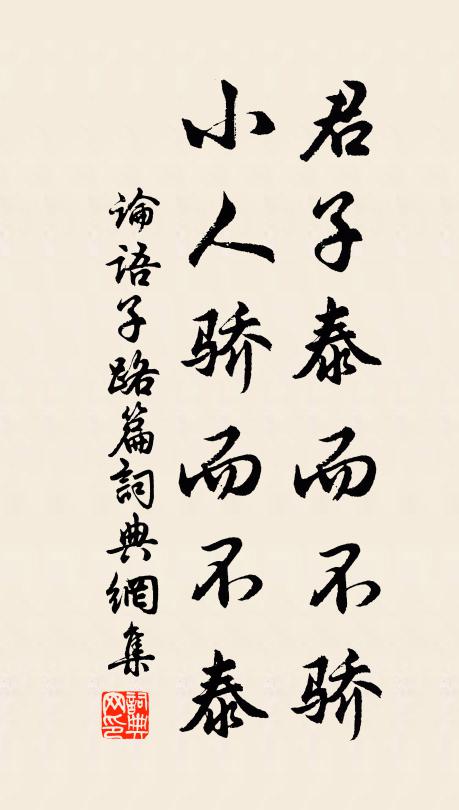 君子泰而不骄
小人骄而不泰
论语子路篇詞典網集
詞典网印